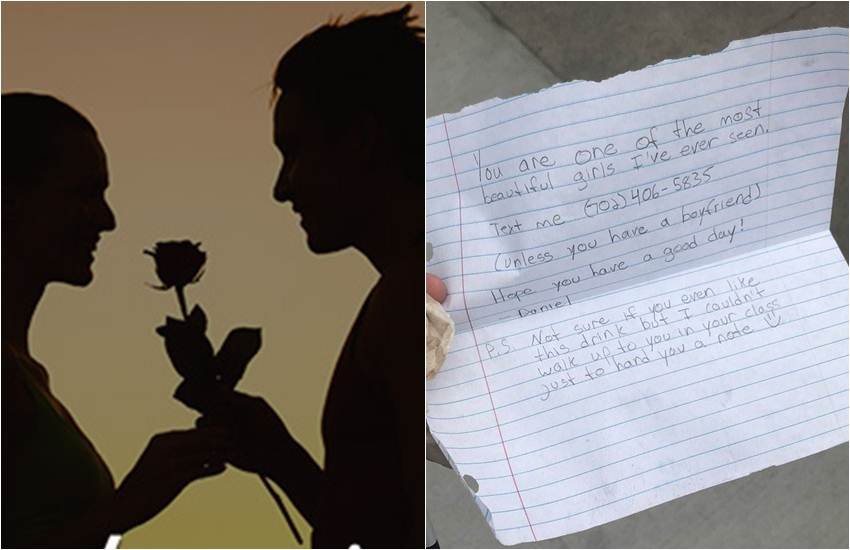 You are one of the most
beautiful girls I've ever seen.
Text me (702)406-5835
(unless you have a boyfriend)
Hope you have a good day!
- Daniel
P.S. Not sure if you even like
this drink but I couldn't
walk up to you in your class
just to hand you a note